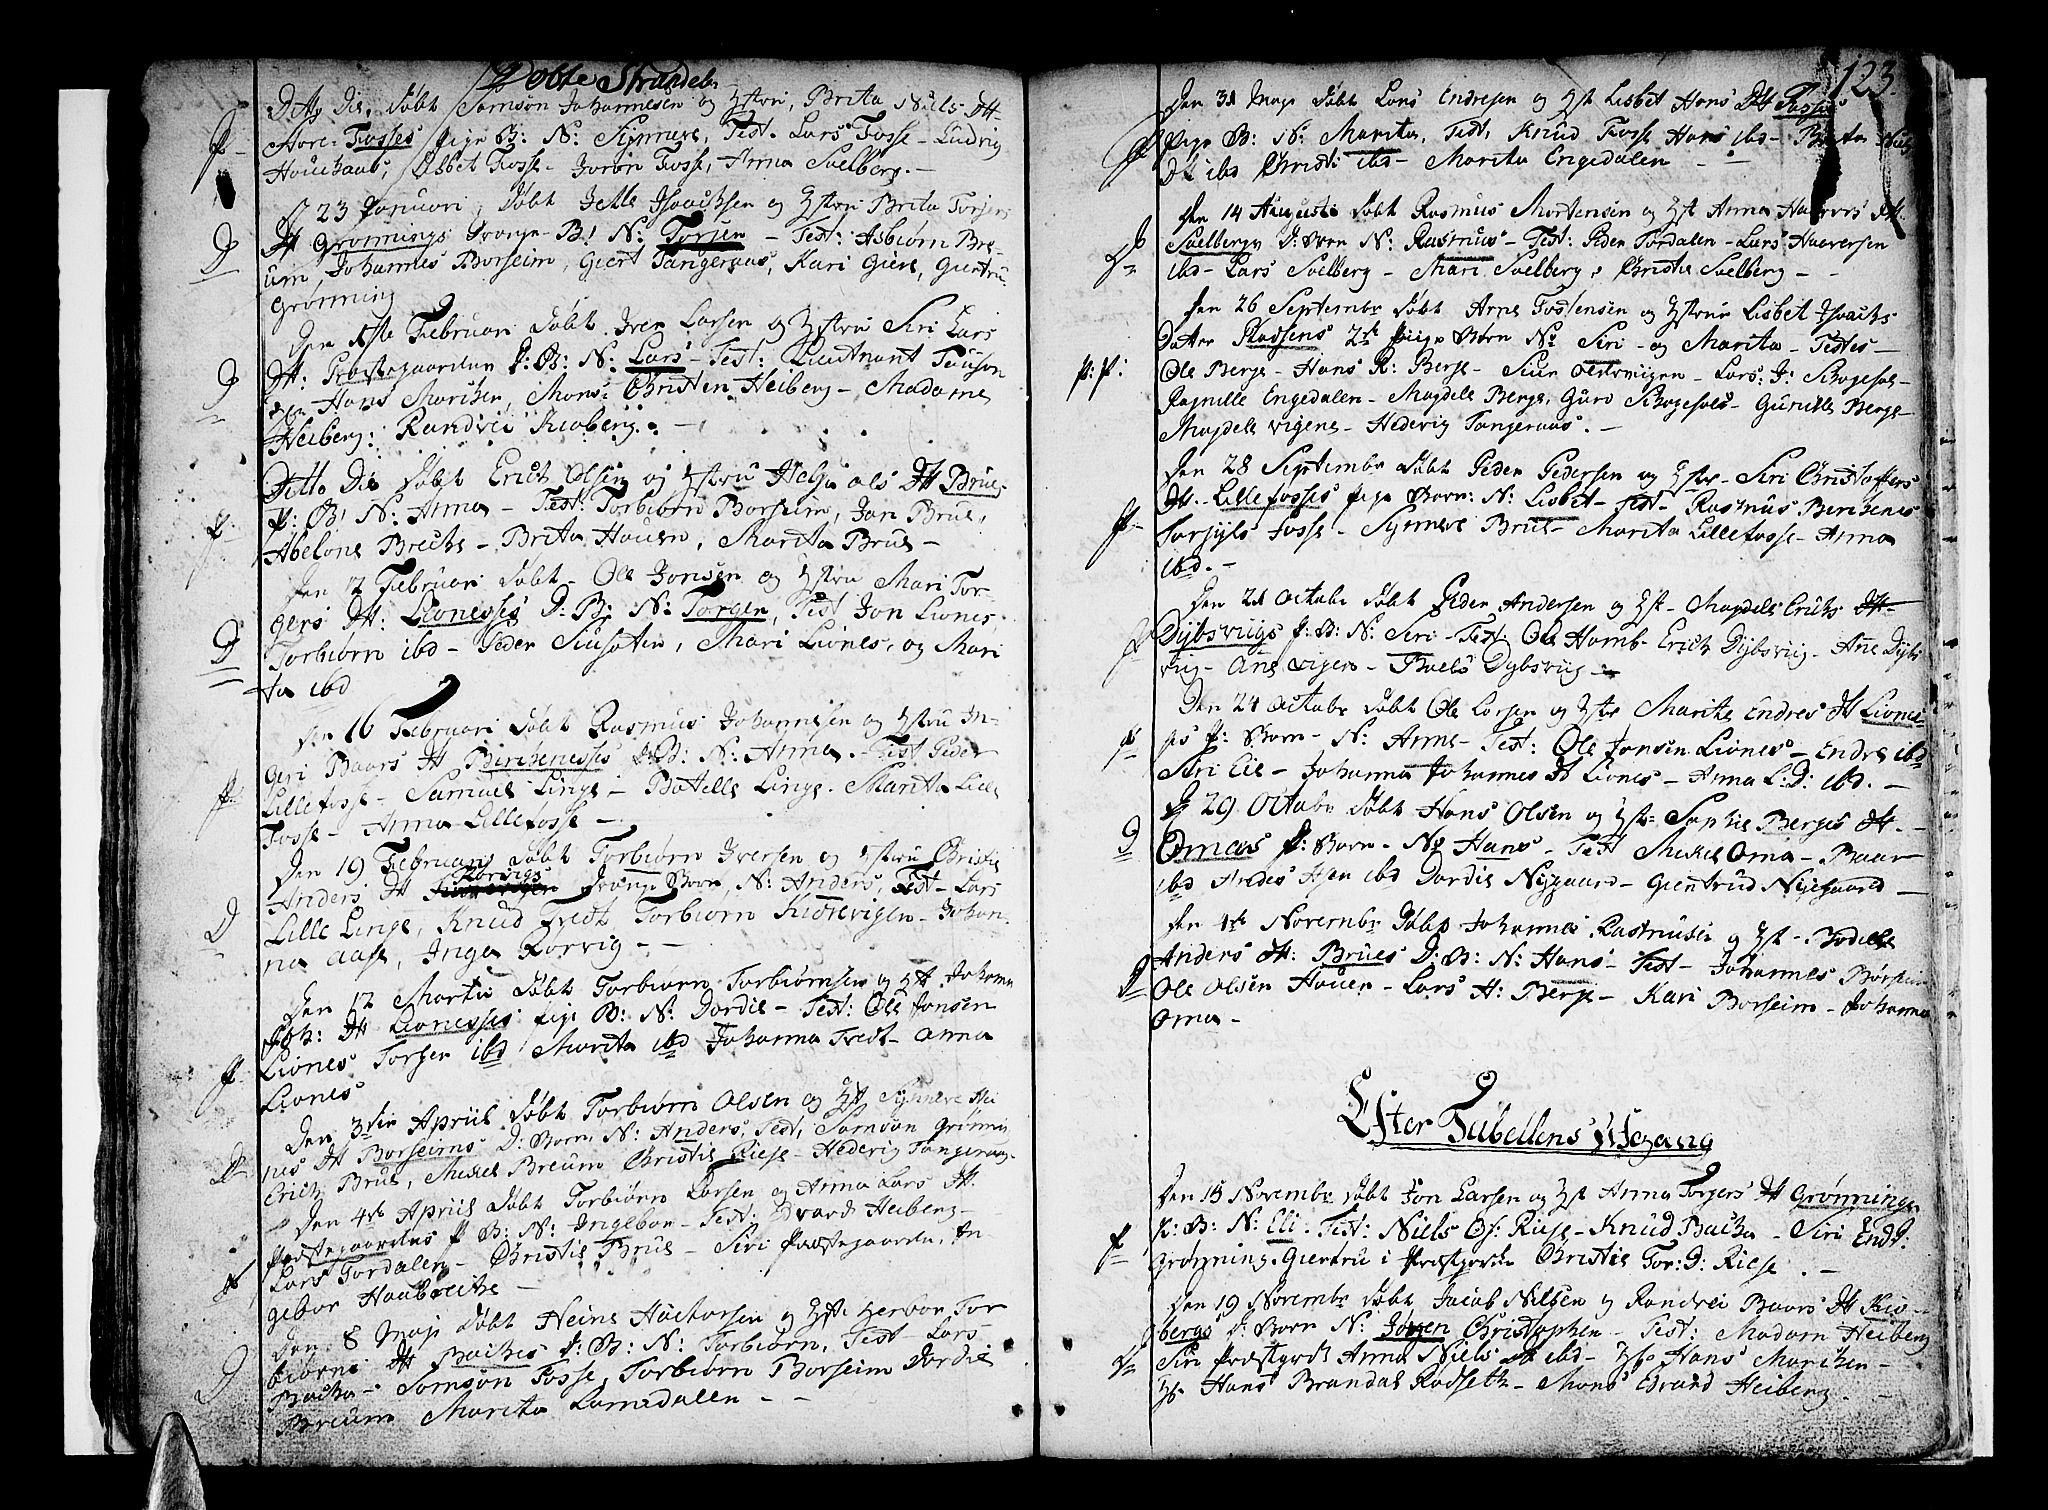 Døbte Strandeb:
Ditto Die, døbt Samson Johannesen og Hstru, Brita Niels Dtt
Store-Fosses pige B: N: Synneve, Test. Lars Fosse - Ludvig
P
Houchaab, Lisbet Fosse - Joron Fosse, Anna Svelberg. -
D 23 Januari, døbt Jetle Isaachsen og Hstru Brita Torjers
Dtt Grønnings Drenge-B: N: Torjen - Test: Asbiørn Bre-
D
um, Johannes Borseim, Giert Tangeraas, Kari Giere, Giertru
Grønning
Den 1ste Februari døbt Iver Larsen og Hstru Siri Lars
Dtt: Præstegaarden D: B: N: Lars - Test: Lieutnant
D
Hans Moritzen, Mons: Christen Heiberg - Madame
Heiberg: Randvei Kioberg. -
Ditto Die døbt Erich Olsen og Hstru Helje Ols Dtt Brues
P: B: N: Anna - Test: Torbiørn Borseim, Jan Brue,
P
Abelone Brechs - Brita Hauen, Marita Brue -
Den 2 Februari døbt - Ole Jonsen og Hstru Mari Tor-
gers Dtt: Lionesses D: B: N: Torger, Test Jon Liones,
D
Torbiørn ibd - Peder Siusæten, Mari Liones, og Mari
ta ibd
Den 16 Februari døbt Rasmus Johannesen og Hstru In-
geri Baars Dtt Birchenesses P: B: N: Anna - Test Peder
P
Lillefosse - Samuel Linge - Botelle Linge - Marita Lille
Fosse - Anna Lillefosse -
Den 19 Februari døbt Torbiørn Iversen og Hstru Christie
Rorvigs
Anders Dtt Drenge Born, N: Anders, Test - Lars
D
Lille Linge, Knud Tredt Torbiørn Kidrevigen - Johan-
na Aase, Inga Rorvig -
Den 12 Martii døbt Torbiørn Torbiørnsen og Hst Johanna
Joh: Dtt Lionesses pige B: N: Dordie - Test: Ole Jonsen
P
Liones Torger ibd Marita ibd Johanna Tredt - Anna
Liones
Den 3die Apriil døbt Torbiørn Olsen og Hst Synneve
Dtt Borseims D: Born N: Anders, Test, Samson Grønning
D
Erich Brue, Michel Breum Christie Riise - Hedevig Tangeraas
Den 4de Apriil døbt Torbiørn Larsen og Anna Lars Dtt
Præstegaardens P: B: N: Ingebor - Test: Edvard Heiberg -
P
Lars Tordalen - Christie Brue - Siri Præstegaarden, In
gebor Haubreche -
Den 8 Maji døbt Heine Hactorsen og Hst Herbor Tor
biørns Dtt Baches D: B: N: Torbiørn, Test - Lars
D
Bache - Samson Fosse, Torbiørn Borseim Dordie
Breum Marita Lamedalen -
123.
Den 31 Maji døbt Lars Endresen og Hst Lisbet Hans Dtt Fosses
Pige B: N: Marita, Test, Knud Fosse Hans ibd - Brita Niels
P
Dt ibd Christi ibd - Marita Engedalen -
Den 14 Augusti døbt Rasmus Mortensen og Hst Anna Haavers Dtt.
Svelbergs D: Born N: Rasmus - Test: Peder Tordalen - Lars Haaversen
D
ibd - Lars Svelberg - Mari Svelberg, Christie Svelberg -
Den 26 Septembr døbt Arne Tostensen og Hstrue Lisbet Isachs
Datter Rødsens 2de Piige Børn N: Siri - og Marita - Testes -
P: P:
Ole Berge - Hans R: Berge - Siur - Lars: J: Schogesol -
Ragnille Engedalen - Magdele Berge, Guro Schogesols - Gunille Berge
Magdele Vigene - Hedevig Tangeraas. -
Den 28 Septembr døbt Peder Pedersen og Hstr - Siri Christoffers
Dtt. Lillefosses pige Born: N: Lisbet - Test - Rasmus Berchenes
P
Torgyls Fosse - Synneve Brue - Marita Lillefosse - Anna
ibd. -
Den 21 Octobr døbt Peder Andersen og Hst - Magdele Erichs Dtt -
Dybsvigs P: B: N: Siri - Test: Ole Hamb - Erich Dybsvig - Ane Dybs
P
vig - Ane Vigen - Boels Dybsvig -
Den 24 Octobr døbt Ole Larsen og Hstr Marite Endres Dtt Liones-
ses P: Born - N: Anne - Test: Ole Jonsen Liones - Endre ibd
P
Siri Eie - Johanna Johannes Dt Liones - Anna L: D: ibd. -
D 29 Octobr døbt Hans Olsen og Hstr: Sophie Berges Dtt. -
D
Omaas D: Born - N: Hans - Test Michel Oma - Baar
ibd Anders ibd Dordie Nygaard - Giertrud Nygaard -
Den 1te Novembr døbt Johannes Rasmusen og Hst - Bodille
Anders Dtt: Brues D: B: N: Hans - Test - Johannes Børseim
D
Ole Olsen Hauen - Lars H: Berge - Kari Borseim - Johanna
Oma -
Efter Tabellens Afgang
Den 15 Novembr døbt Jon Larsen og Hst Anna Torgers Dtt Grønninge
P: B: N: Eli - Test: Niels Ol: Riise - Knud Bache - Siri End:
P
Grønning. Giertru i Præstgorden Christie Tor: D: Riise. -
Den 19 Novembr døbt Jacob Nilsen og Randvei Baars Dtt Kio-
bergs D: Born N: Jørgen Christopher - Test: Madam Heiberg
D
Siri Præstgords Anna Niels Dt ibd - Hr Hans Moritzen -
Hr Hans Brandal Rødseth - Mons Edvard Heiberg. -